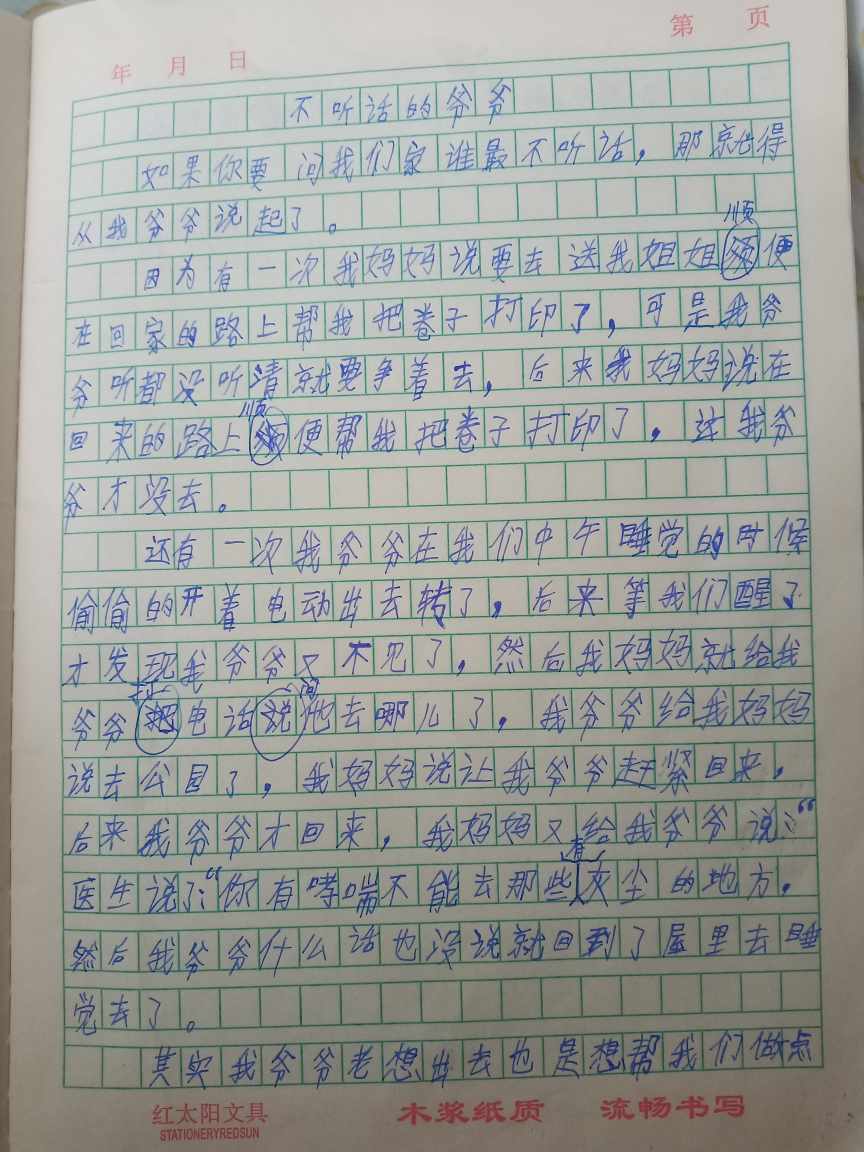 第 页
年 月 日
不听话的爷爷
如果你要问我们家谁最不听话，那就得
从我爷爷说起了。
顺
因为有一次我妈妈说要去送我姐姐便
在回家的路上帮我把卷子打印了，可是我爷
爷听都没听清就要争着去，后来我妈妈说在
顺
回来的路上便帮我把卷子打印了，这我爷
爷才没去。
还有一次我爷爷在我们中午睡觉的时候
偷偷的开着电动出去转了，后来等我们醒了
才发现我爷爷又不见了，然后我妈妈就给我
打 问
爷爷把电话说他去哪儿了，我爷爷给我妈妈
说去公园了，我妈妈说让我爷爷赶紧回来，
后来我爷爷才回来，我妈妈又给我爷爷说：“
有
医生说了：“你有哮喘不能去那些灰尘的地方，
然后我爷爷什么话也没说就回到了屋里去睡
觉去了。
其实我爷爷老想出去也是想帮我们做点
红太阳文具 木浆纸质 流畅书写
STATIONERYREDSUN